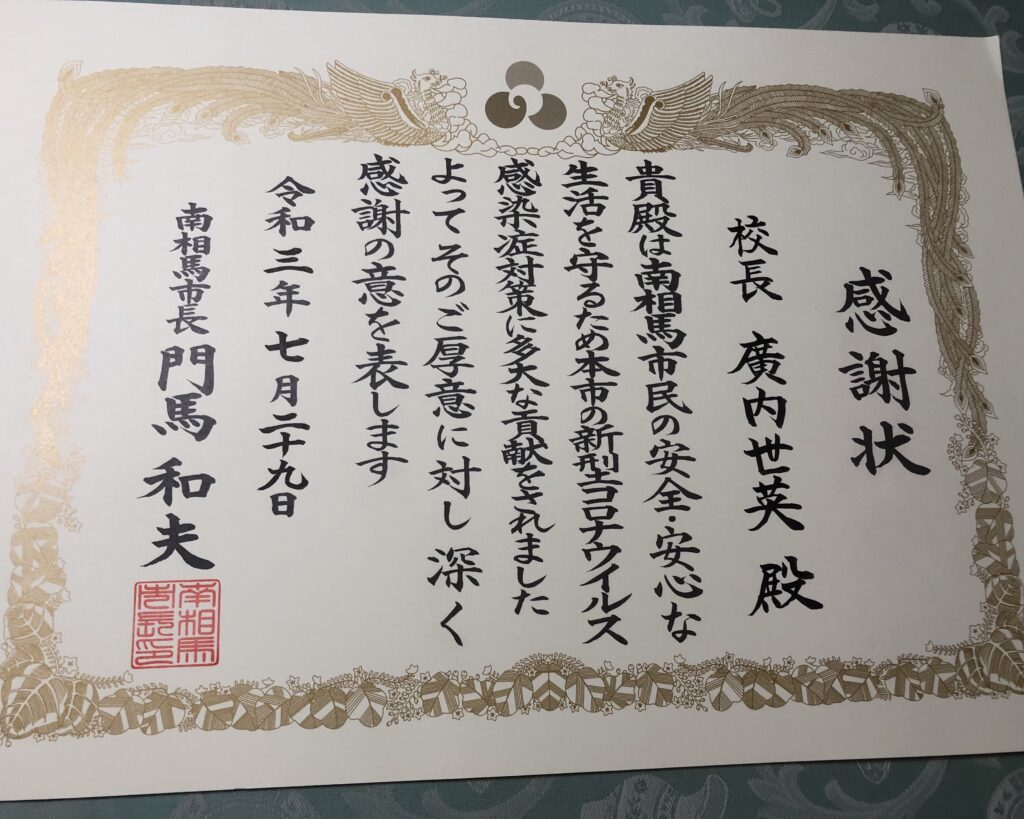 感謝状
校長 廣内世英 殿
貴殿は南相馬市民の安全・安心な
生活を守るため本市の新型コロナウイルス
感染症対策に多大な貢献をされました
よってそのご厚意に対し 深く
感謝の意を表します
令和三年七月二十九日
南相馬市長 門馬 和夫
南相馬
市長之印